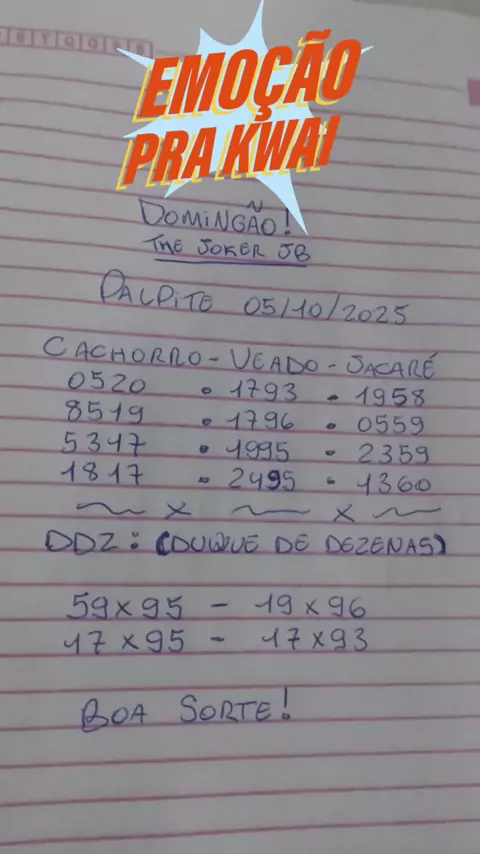 EMOÇÃO
PRA KWAI
DOMINGÃO!
THE JOKER JB
PALPITE 05/10/2025
CACHORRO - VEADO - JACARÉ
0520 • 1793 - 1958
8519 • 1796 • 0559
5317 • 1995 - 2359
1817 • 2495 - 1360
x x
DDZ: (DUQUE DE DEZENAS)
59x95 - 19x96
17x95 - 17x93
BOA SORTE!